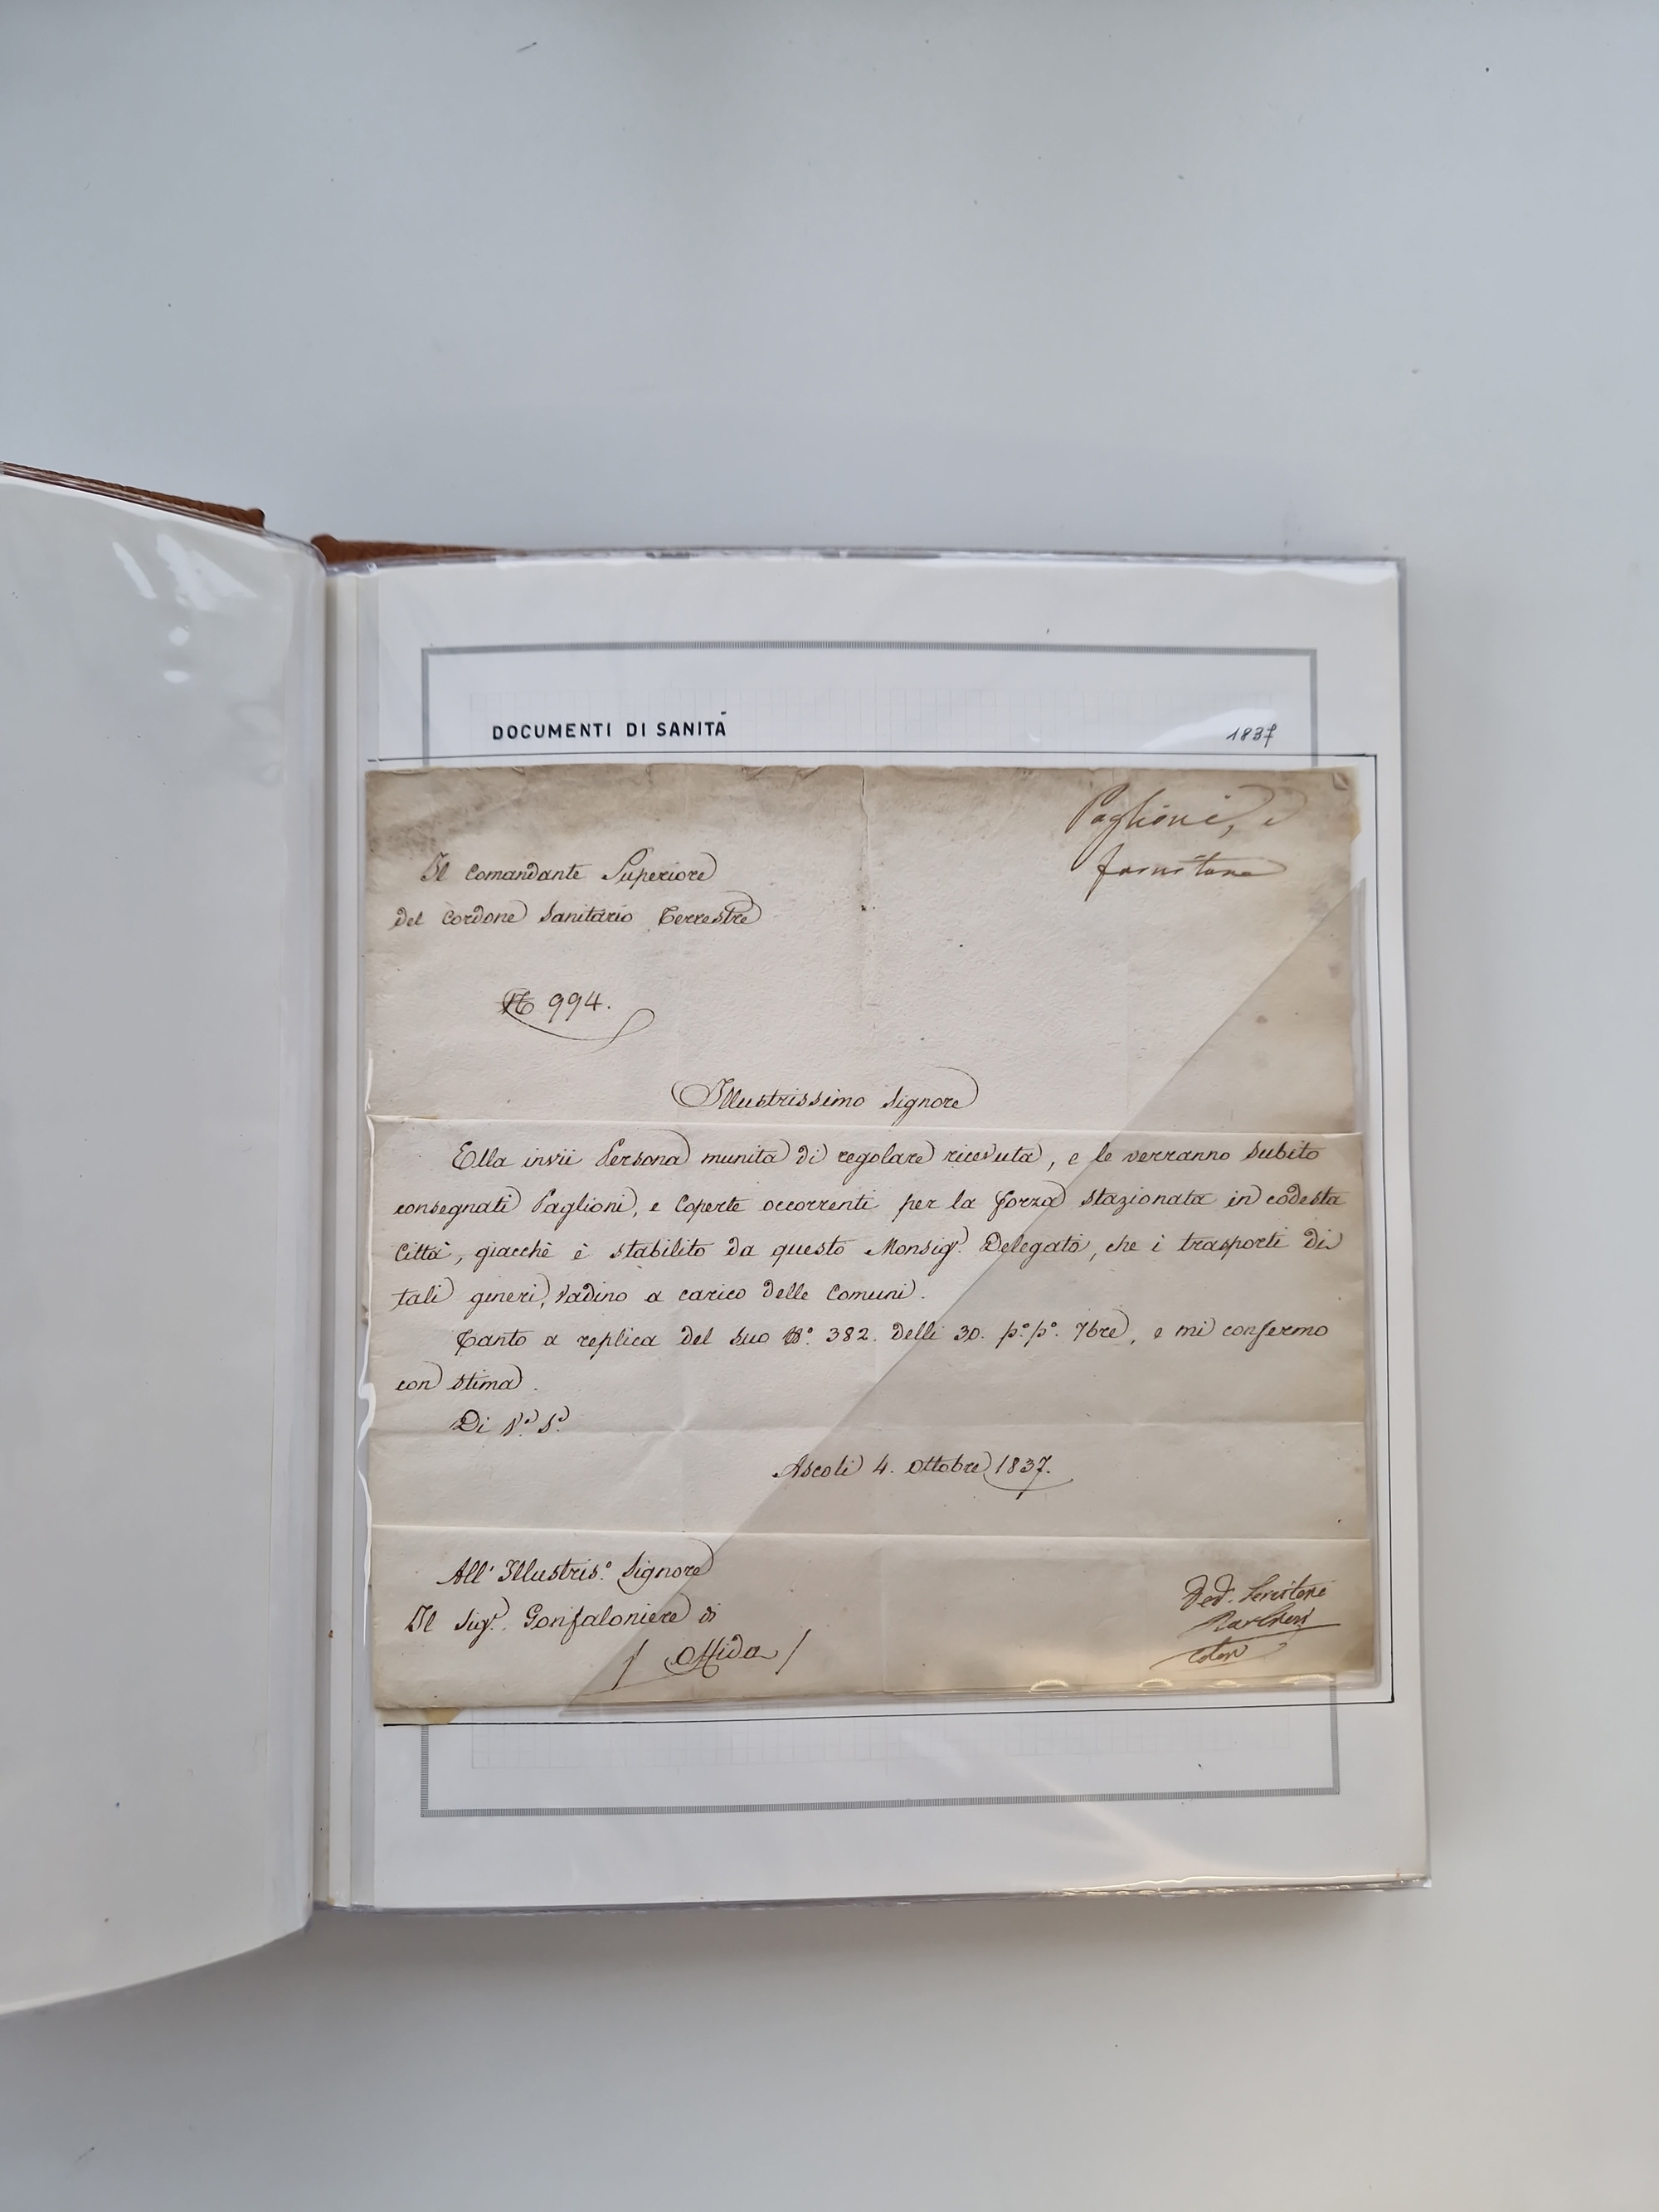 DOCUMENTI DI SANITÀ 1837
Paglioni, e
Il Comandante Superiore
del Cordone Sanitario Terrestre
N 994.
Illustrissimo Signore
Ella invii Persona munita di regolare ricevuta, e le verranno subito
consegnati Paglioni, e Coperte occorrenti per la forza stazionata in codesta
Città, giacchè è stabilito da questo Monsigr. Delegato, che i trasporti di
tali generi, vadino a carico delle Comuni.
Tanto a replica del suo No. 382. delli 30. po. po. 7bre, e mi confermo
con stima.
Di Va. Sa.
Ascoli 4. Ottobre 1837.
All' Illustriso. Signore
Il Sigr. Gonfaloniere di
/ Offida /
Servitore